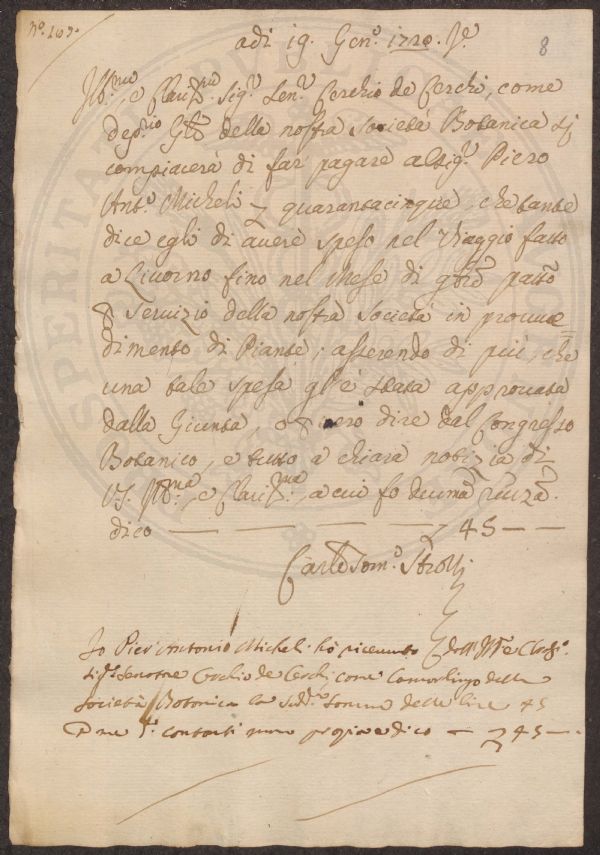 N.º 103.
adi 19. Genº. 1720. Jc.
8
Ill.mo, e Clariss.mo Sig.r Sen.r Cerchio de Cerchi, come
Depº.rio Gñle della nostra Società Botanica si
compiacerà di far pagare al Sig.r Piero
Ant.º Micheli quarantacinque, che tante
dice egli di avere speso nel Viaggio fatto
a Livorno fino nel Mese di 9bre passo
servizio della nostra Società in provve=
dimento di Piante; asserendo di più, che
una tale spesa gl'è stata approvata
dalla Giunta, o vero dire dal Congresso
Botanico, e tutto a chiara notizia di
V.S. Ill.ma, e Clariss.ma, a cui fo
dico — — — — — 45 — —
Carlo Tom.º Strozzi
Io Pier' Antonio Micheli hò ricevuto dall' Ill.e Clariss.º
Sig.r Senatore Cerchio de Cerchi come Camarlingo della
Società Botanica la sud.a somma delle lire 45
contanti mano propria dico — 45 —